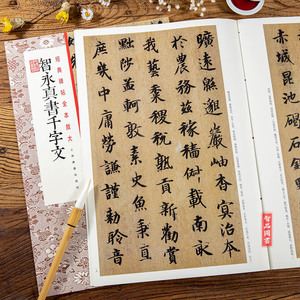 赤城昆池碣石
曠遠綿邈巖岫杳冥治本
於農務茲稼穡俶載南畝
我藝黍稷稅熟貢新勸賞
黜陟孟軻敦素史魚秉直
庶幾中庸勞謙謹勑聆音
經典碑帖全本放大
智永真書千字文
智品圖書